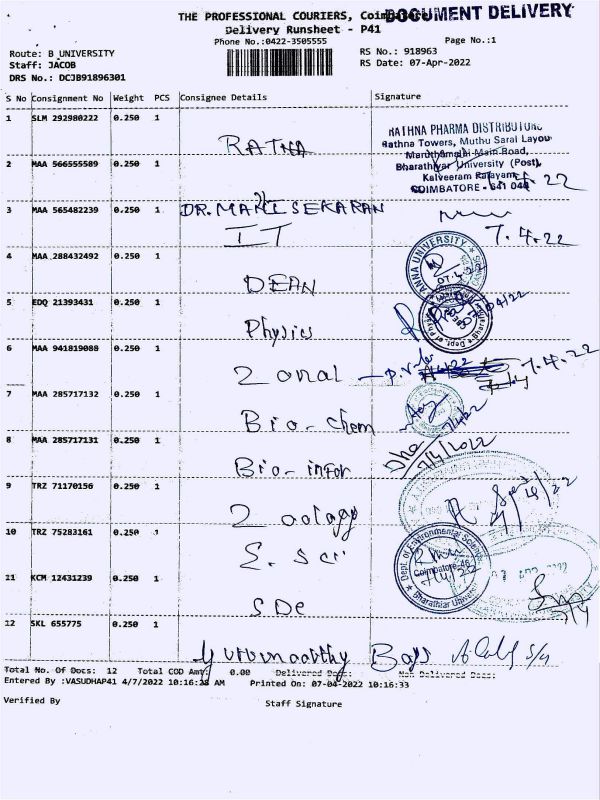 THE PROFESSIONAL COURIERS, Coimbatore
DOCUMENT DELIVERY
Delivery Runsheet - P41
Phone No.:0422-3505555
Page No.:1
Route: B UNIVERSITY
RS No.: 918963
Staff: JACOB
RS Date: 07-Apr-2022
DRS No.: DCJB91896301
S No Consignment No Weight PCS Consignee Details Signature
1 SLM 292980222 0.250 1
RATNA
RATHNA PHARMA DISTRIBUTORS
Rathna Towers, Muthu Sarai Layout
Maruthamalai Main Road,
Bharathiyar University (Post),
Kalveeram Palayam,
COIMBATORE - 641 046
7.4.22
2 MAA 566555589 0.250 1
DR. MANISEKARAN
3 MAA 565482239 0.250 1
IT
7.4.22
4 MAA 288432492 0.250 1
DEAN
ANNA UNIVERSITY
07.4.22
5 EDQ 21393431 0.250 1
Physics
Dept. of Physics
6 MAA 941819088 0.250 1
Zonal
7.4.22
7 MAA 285717132 0.250 1
Bio-chem
7/4/22
8 MAA 285717131 0.250 1
Bio-infor
7/4/2022
9 TRZ 71170156 0.250 1
Zoology
10 TRZ 75283161 0.250 1
E. sci
Dept. of Environmental Science
Coimbatore-46
Bharathiar University
7/4/22
11 KCM 12431239 0.250 1
SDE
7/4
12 SKL 655775 0.250 1
Gurumoorthy Boys
Total No. Of Docs: 12 Total COD Amt: 0.00 Delivered Docs: Not Delivered Docs:
Entered By :VASUDHAP41 4/7/2022 10:16:28 AM Printed On: 07-04-2022 10:16:33
Verified By
Staff Signature